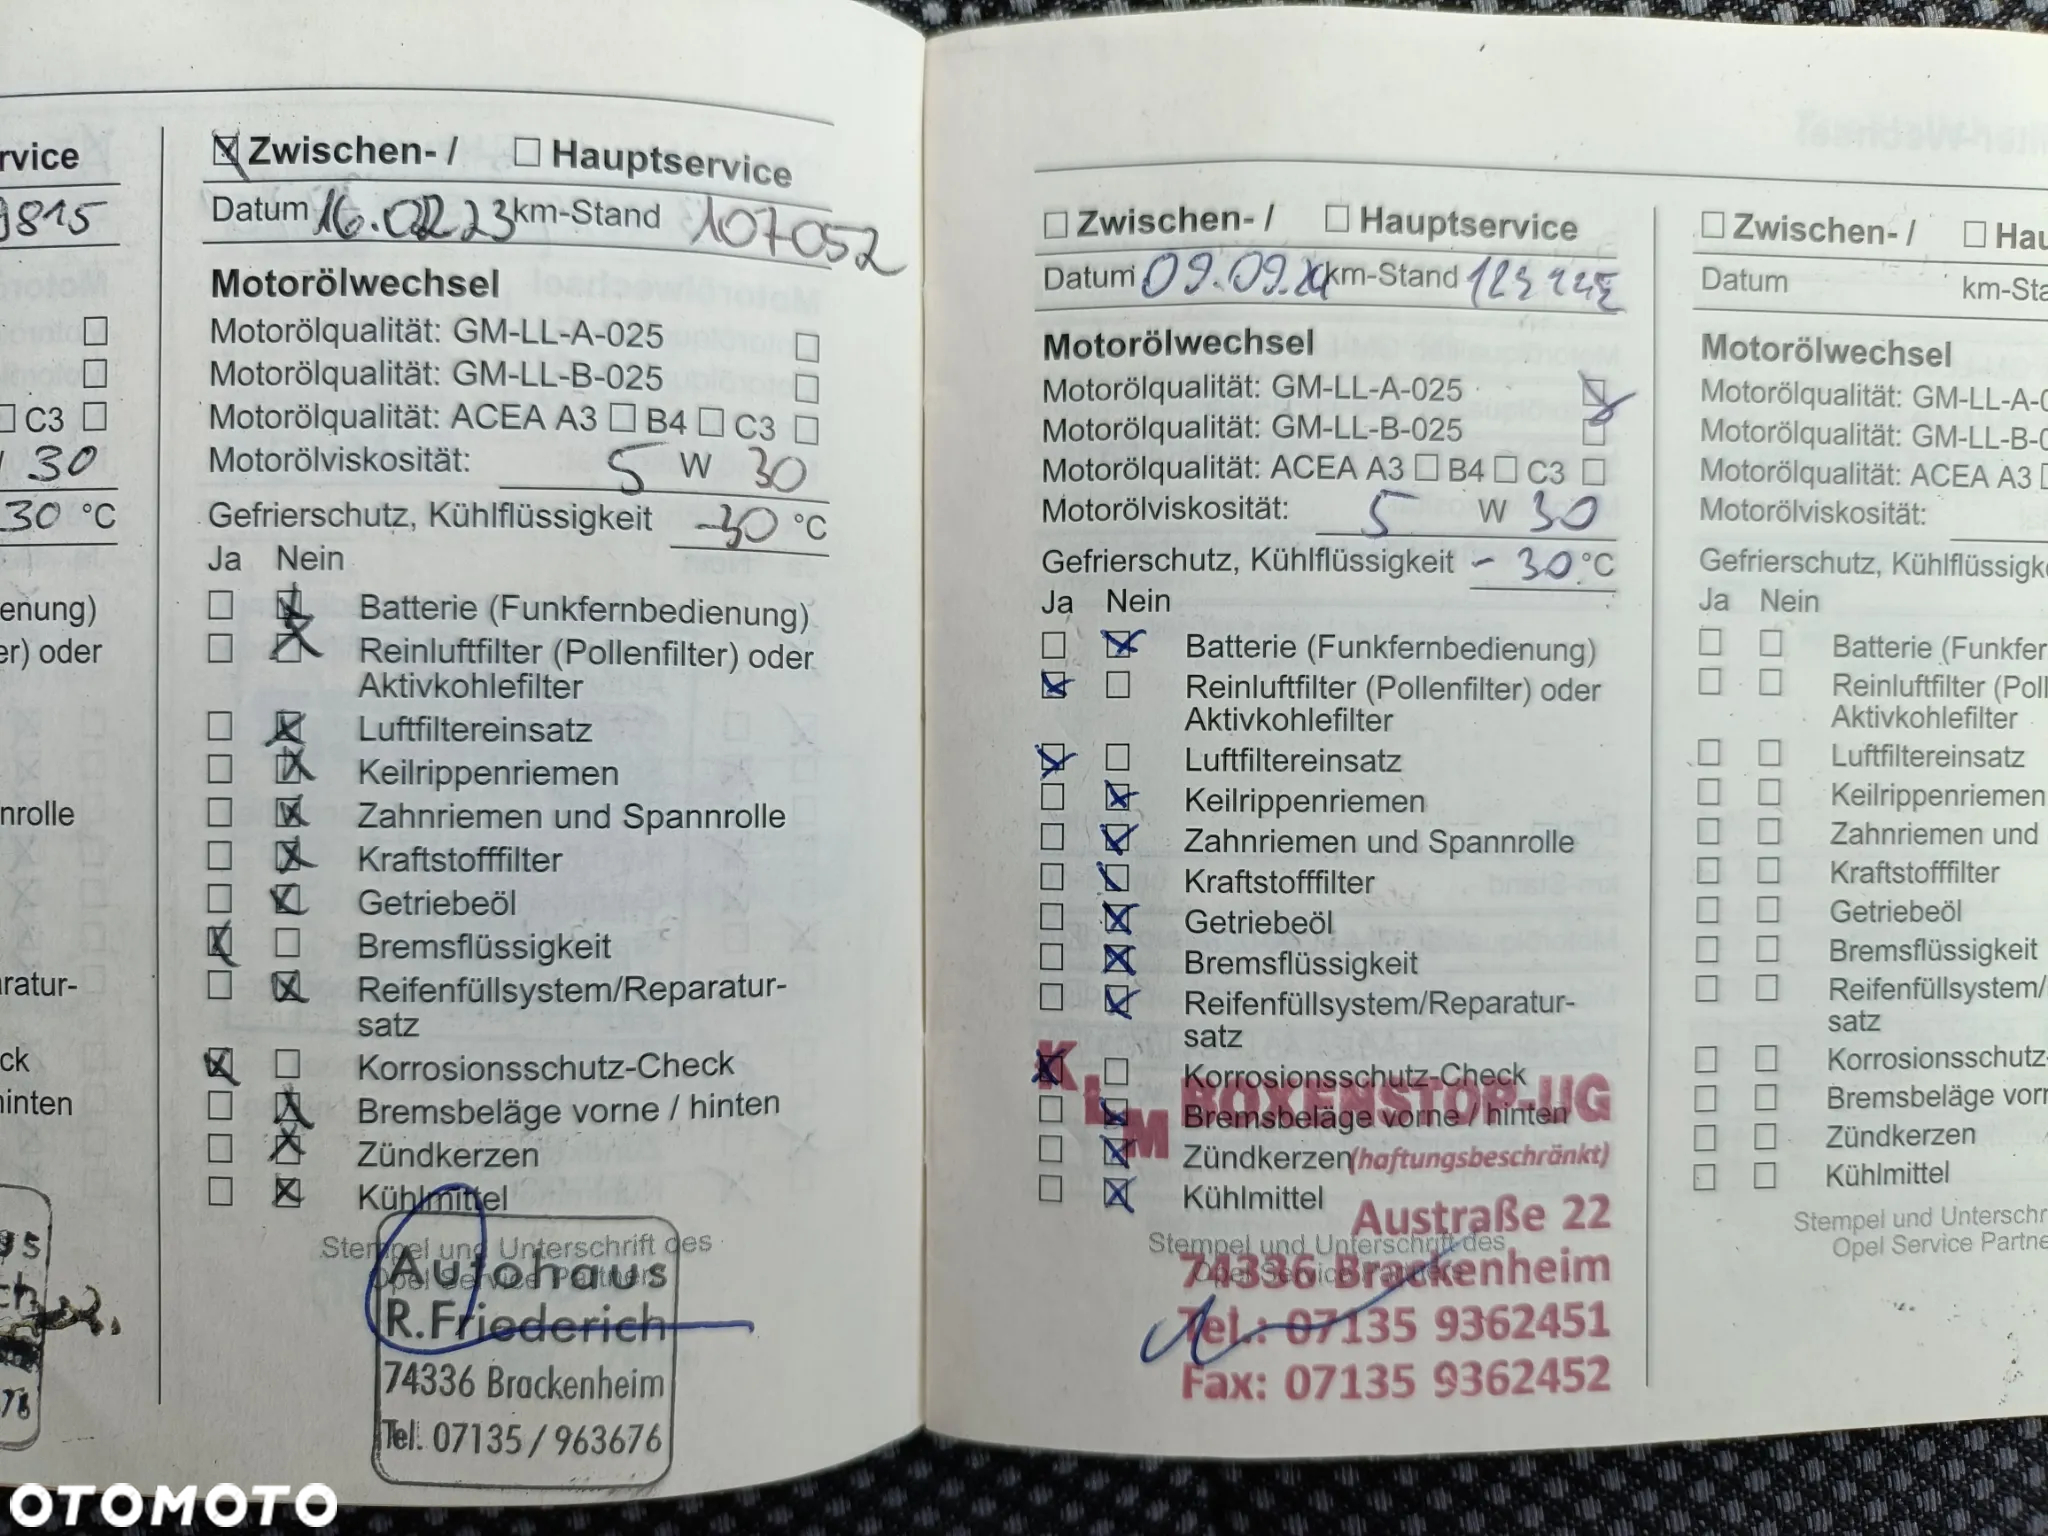 rvice
9815
C3
30
30 °C
enung)
er) oder
nrolle
ratur-
ck
inten
Zwischen- / Hauptservice
Datum 16.02.23 km-Stand 107052
Motorölwechsel
Motorölqualität: GM-LL-A-025
Motorölqualität: GM-LL-B-025
Motorölqualität: ACEA A3 B4 C3
Motorölviskosität: 5 W 30
Gefrierschutz, Kühlflüssigkeit -30 °C
Ja Nein
Batterie (Funkfernbedienung)
Reinluftfilter (Pollenfilter) oder
Aktivkohlefilter
Luftfiltereinsatz
Keilrippenriemen
Zahnriemen und Spannrolle
Kraftstofffilter
Getriebeöl
Bremsflüssigkeit
Reifenfüllsystem/Reparatur-
satz
Korrosionsschutz-Check
Bremsbeläge vorne / hinten
Zündkerzen
Kühlmittel
Stempel und Unterschrift des
Opel Service Partners
Autohaus
R.Friederich
74336 Brackenheim
Tel. 07135 / 963676
Zwischen- / Hauptservice
Datum 09.09.24 km-Stand
Motorölwechsel
Motorölqualität: GM-LL-A-025
Motorölqualität: GM-LL-B-025
Motorölqualität: ACEA A3 B4 C3
Motorölviskosität: 5 W 30
Gefrierschutz, Kühlflüssigkeit - 30 °C
Ja Nein
Batterie (Funkfernbedienung)
Reinluftfilter (Pollenfilter) oder
Aktivkohlefilter
Luftfiltereinsatz
Keilrippenriemen
Zahnriemen und Spannrolle
Kraftstofffilter
Getriebeöl
Bremsflüssigkeit
Reifenfüllsystem/Reparatur-
satz
Korrosionsschutz-Check
Bremsbeläge vorne / hinten
Zündkerzen
Kühlmittel
Stempel und Unterschrift des
Opel Service Partners
KLM BOXENSTOP-UG
(haftungsbeschränkt)
Austraße 22
74336 Brackenheim
Tel.: 07135 9362451
Fax: 07135 9362452
Zwischen- / Hau
Datum km-Sta
Motorölwechsel
Motorölqualität: GM-LL-A-0
Motorölqualität: GM-LL-B-0
Motorölqualität: ACEA A3
Motorölviskosität:
Gefrierschutz, Kühlflüssigke
Ja Nein
Batterie (Funkfer
Reinluftfilter (Poll
Aktivkohlefilter
Luftfiltereinsatz
Keilrippenriemen
Zahnriemen und
Kraftstofffilter
Getriebeöl
Bremsflüssigkeit
Reifenfüllsystem/
satz
Korrosionsschutz-
Bremsbeläge vorn
Zündkerzen
Kühlmittel
Stempel und Unterschr
Opel Service Partne
OTOMOTO